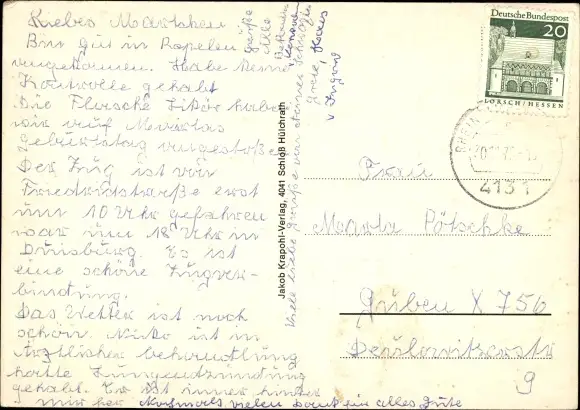 Liebes Martchen!
Bin gut in Rapelen
angekommen. Habe keine
Kontrolle gehabt
Die Flasche Likör haben
wir auf Martas
geburtstag angestoßen
Der Zug ist von
Friedrichstraße erst
um 10 Uhr gefahren
war um 18 Uhr in
Duisburg. Es ist
eine schöne Zugver-
bindung.
Das Wetter ist noch
schön. Mirko ist in
Ärztlicher behandlung
hatte Lungenentzündung
gehabt. Er ist immer hinter
mir her Nochmals vielen Dank ein alles Gute
grüße
alle
Bekannten
Viele liebe grüße von deiner
grete, Klaus
u Ingrid
Jakob Krapohl-Verlag, 4041 Schloß Hülchrath
Deutsche Bundespost
20
LORSCH/HESSEN
RHEIN
4131
Frau
Marta Pötschke
Guben X 756
Deulowitzerstr
9